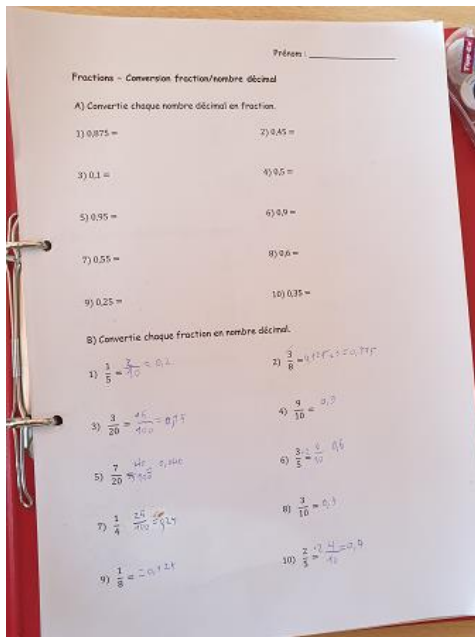 Tipp-Ex
Prénom :
Fractions – Conversion fraction/nombre décimal
A) Convertie chaque nombre décimal en fraction.
1) 0,875 = 2) 0,45 =
3) 0,1 = 4) 0,5 =
5) 0,95 = 6) 0,9 =
7) 0,55 = 8) 0,6 =
9) 0,25 = 10) 0,35 =
B) Convertie chaque fraction en nombre décimal.
1) 1/5 = 2/10 = 0,2 2) 3/8 =
3) 3/20 = 15/100 = 0,15 4) 9/10 = 0,9
5) 7/20 6) 3/5 = 6/10 0,6
7) 1/4 25/100 = 8) 3/10 = 0,3
9) 1/8 = 10) 2/5 = 4/10 = 0,4